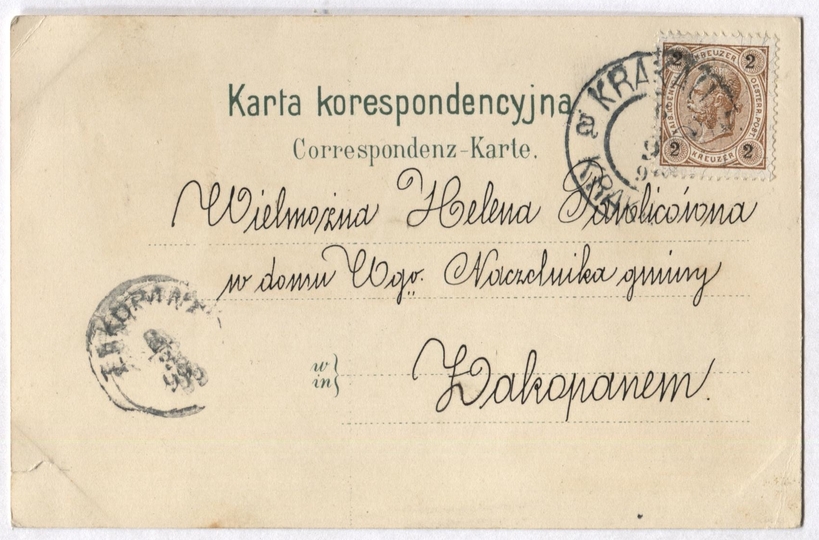 Karta korespondencyjna
Correspondenz-Karte.
2 KREUZER 2
2 KREUZER 2
KRAK
KRAK
Wielmożna Helena Pawlicówna
w domu Wgo. Naczelnika gminy
w
in
Zakopanem.
ZAKOPANE